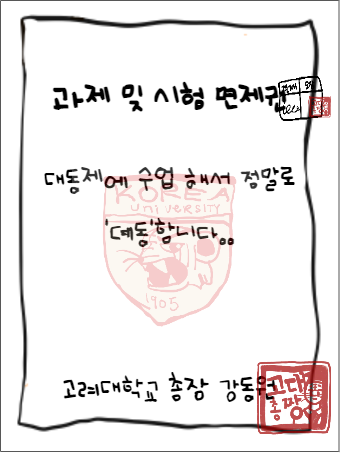 과제 및 시험 면제권
대동제에 수업 해서 정말로
KOREA
UNIVERSITY
'대동'합니다..
1905
고려대학교 총장 강동원
고대
총짱